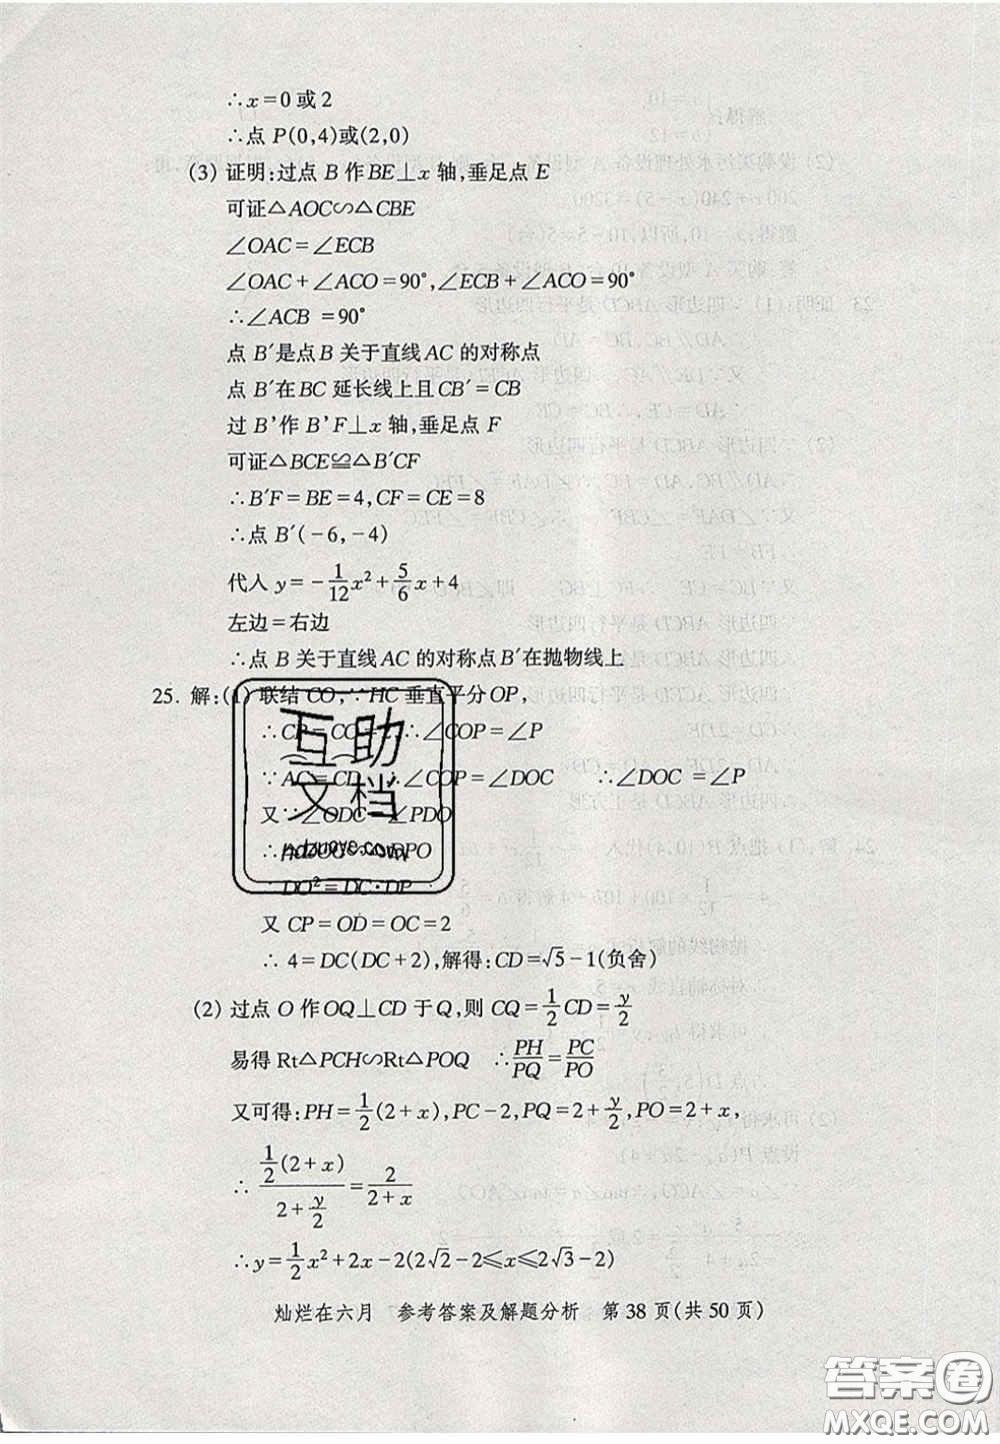 ∴x=0或2
∴点 P(0,4)或(2,0)
(3) 证明:过点 B 作 BE⊥x 轴,垂足点 E
可证△AOC∽△CBE
∠OAC=∠ECB
∠OAC+∠ACO=90°,∠ECB+∠ACO=90°
∴∠ACB=90°
点 B′是点 B 关于直线 AC 的对称点
点 B′在 BC 延长线上且 CB′=CB
过 B'作 B'F⊥x 轴,垂足点 F
可证△BCE≌△B′CF
∴B′F=BE=4,CF=CE=8
∴点 B′(-6,-4)
代入 y=-1/12x²+5/6x+4
左边=右边
∴点 B 关于直线 AC 的对称点 B′在抛物线上
25. 解:(1) 联结 CO,∵HC 垂直平分 OP,
∴CP=CO=2,∴∠COP=∠P
∵AC=CD ∴∠COP=∠DOC ∴∠DOC=∠P
又∵∠ODC=∠PDO
∴△DOC∽△DPO
∴DO²=DC·DP
又 CP=OD=OC=2
∴4=DC(DC+2),解得:CD=√5-1(负舍)
(2) 过点 O 作 OQ⊥CD 于 Q,则 CQ=1/2CD=y/2
易得 Rt△PCH∽Rt△POQ ∴PH/PQ=PC/PO
又可得:PH=1/2(2+x),PC-2,PQ=2+y/2,PO=2+x,
∴ (1/2(2+x))/(2+y/2)=2/(2+x)
∴y=1/2x²+2x-2(2√2-2≤x≤2√3-2)
灿烂在六月 参考答案及解题分析 第 38 页(共 50 页)
互助
文档
hdzuoye.com
答案圈
MXQE.COM